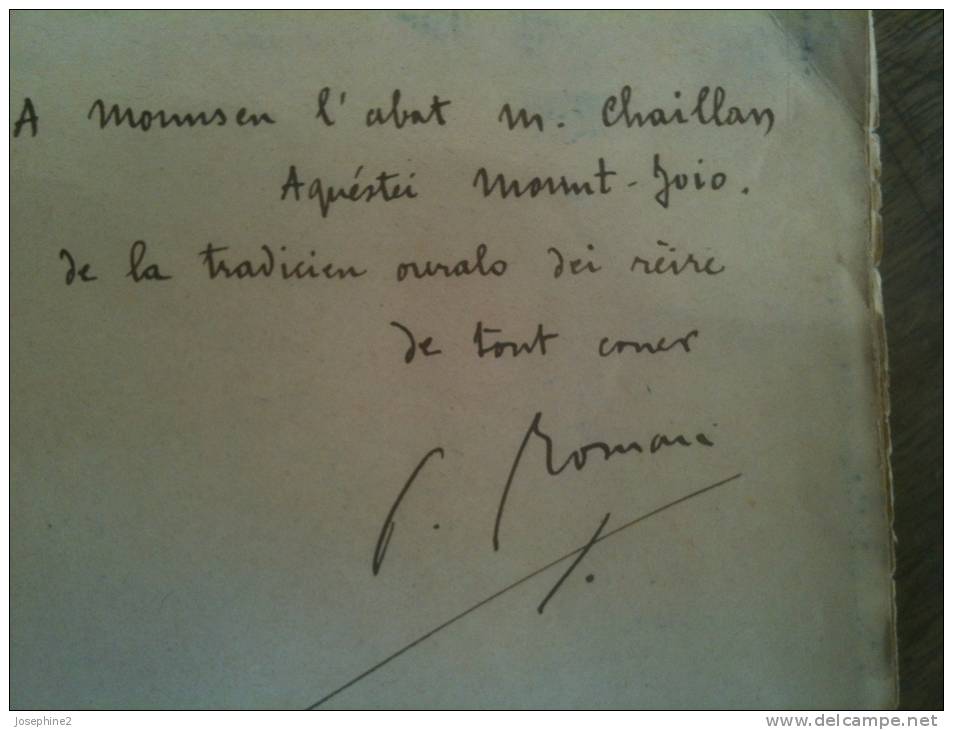 A Moussu l'abat M. Chaillan
Aquéstei Mount-Joio.
de la tradicien ouralo dei rèire
de tout couer
J. Roman
Josephine2
www.delcampe.net